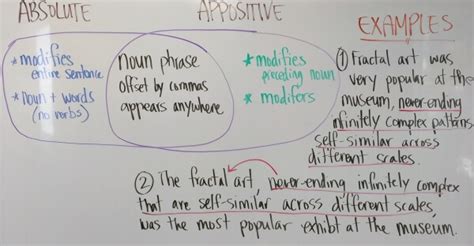 ABSOLUTE
APPOSITIVE
EXAMPLES
* modifies
entire sentence
* noun + words
(no verbs)
noun phrase
offset by commas
appears anywhere
* modifies
preceding noun
* modifers
① Fractal art was
very popular at the
museum, never-ending
infinitely complex patterns
self-similar across
different scales.
② The fractal art, never-ending infinitely complex
that are self-similar across different scales,
was the most popular exhibt at the museum.